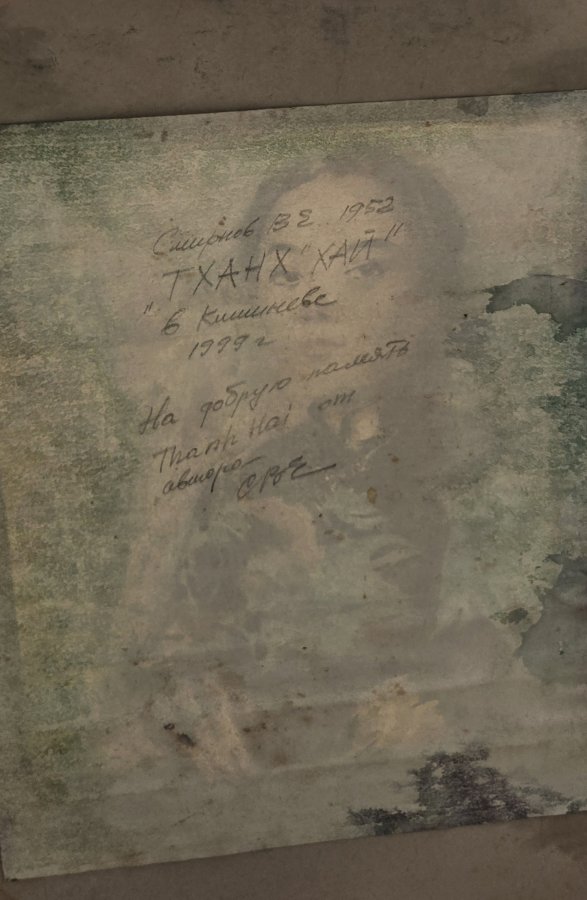 Смирнов В Е 1952
"ТХАНХ "ХАЙ"
в Кишиневе
1999 г
На добрую память
Thanh Hai от
автора СВЕ